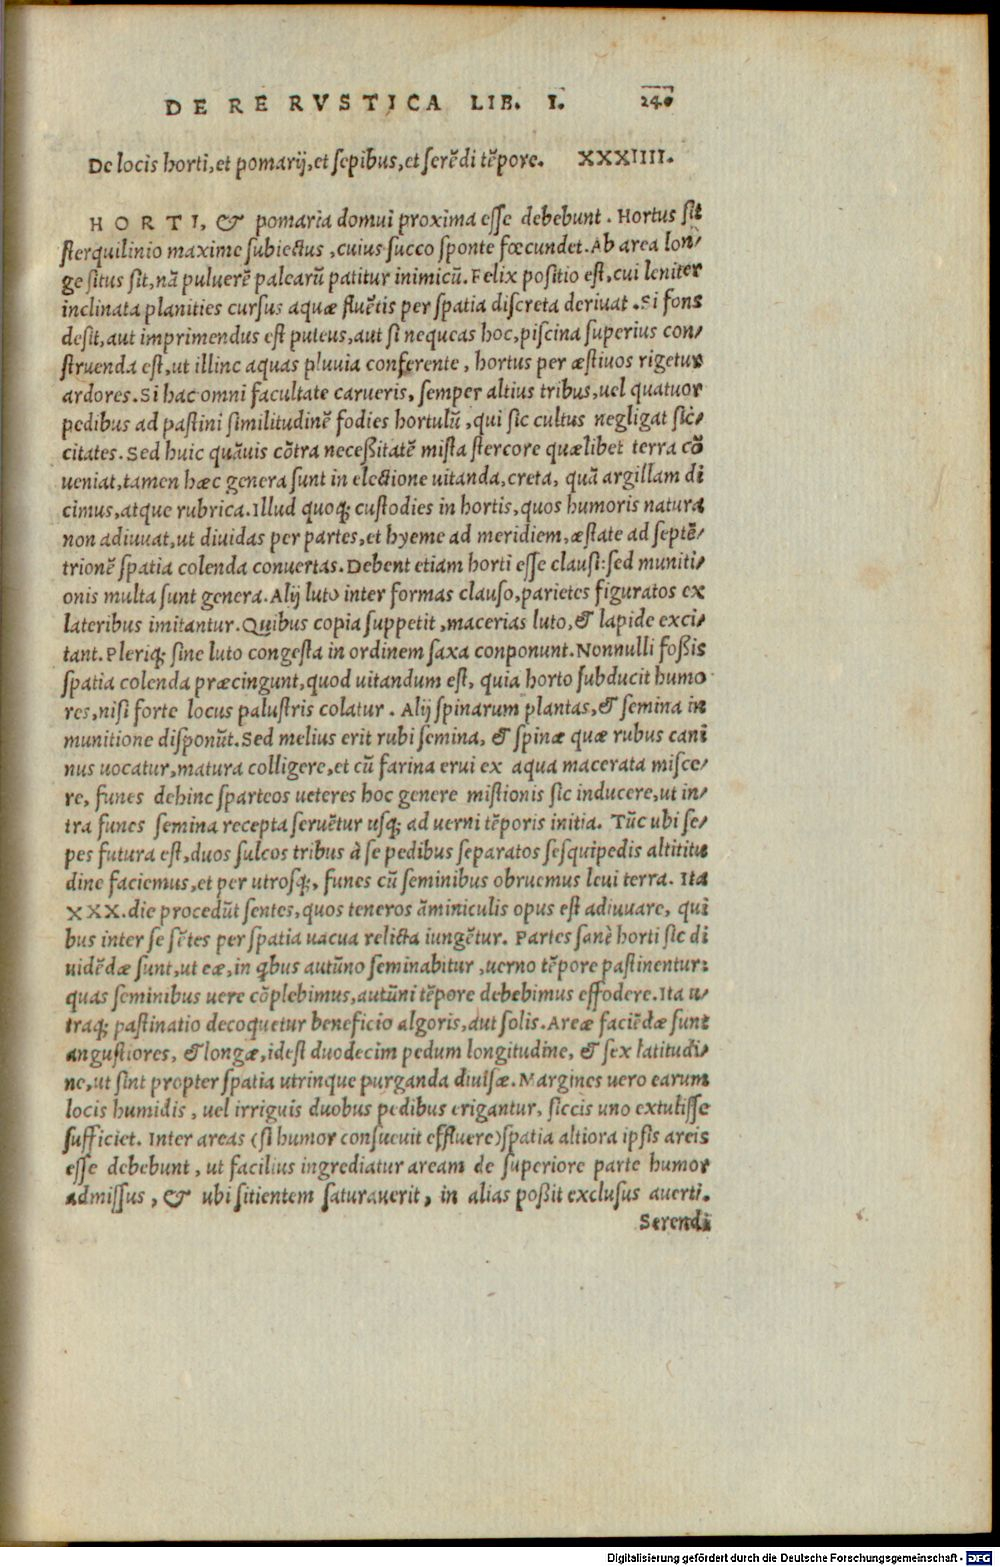 DE RE RVSTICA LIB. I. 240
De locis horti, et pomarij, et sepibus, et serēdi tēpore. XXXIIII.
HORTI, & pomaria domui proxima esse debebunt. Hortus sit
sterquilinio maxime subiectus, cuius succo sponte fœcundet. Ab area lon/
ge situs sit, nā puluerē palearū patitur inimicū. Felix positio est, cui leniter
inclinata planities cursus aquæ fluētis per spatia discreta deriuat. Si fons
desit, aut imprimendus est puteus, aut si nequeas hoc, piscina superius con/
struenda est, ut illinc aquas pluuia conferente, hortus per æstiuos rigetur
ardores. Si hac omni facultate carueris, semper altius tribus, uel quatuor
pedibus ad pastini similitudinē fodies hortulū, qui sic cultus negligat sic/
citates. Sed huic quāuis cōtra necessitatē mista stercore quælibet terra cō
ueniat, tamen hæc genera sunt in electione uitanda, creta, quā argillam di
cimus, atque rubrica. Illud quoq; custodies in hortis, quos humoris natura
non adiuuat, ut diuidas per partes, et hyeme ad meridiem, æstate ad septē/
trionē spatia colenda conuertas. Debent etiam horti esse clausi: sed muniti/
onis multa sunt genera. Alij luto inter formas clauso, parietes figuratos ex
lateribus imitantur. Quibus copia suppetit, macerias luto, & lapide exci/
tant. Pleriq; sine luto congesta in ordinem saxa conponunt. Nonnulli fossis
spatia colenda præcingunt, quod uitandum est, quia horto subducit humo
res, nisi forte locus palustris colatur. Alij spinarum plantas, & semina in
munitione disponūt. Sed melius erit rubi semina, & spinæ quæ rubus cani
nus uocatur, matura colligere, et cū farina erui ex aqua macerata misce/
re, funes dehinc sparteos ueteres hoc genere mistionis sic inducere, ut in/
tra funes semina recepta seruētur usq; ad uerni tēporis initia. Tūc ubi se/
pes futura est, duos sulcos tribus à se pedibus separatos sesquipedis altititu
dine faciemus, et per utrosq;, funes cū seminibus obruemus leui terra. Ita
XXX. die procedūt sentes, quos teneros āminiculis opus est adiuuare, qui
bus inter se sētes per spatia uacua relicta iungētur. Partes sanè horti sic di
uidēdæ sunt, ut eæ, in qbus autūno seminabitur, uerno tēpore pastinentur:
quas seminibus uere cōplebimus, autūni tēpore debebimus effodere. Ita u/
traq; pastinatio decoquetur beneficio algoris, aut solis. Areæ faciēdæ sunt
angustiores, & longæ, idest duodecim pedum longitudine, & sex latitudi/
ne, ut sint propter spatia utrinque purganda diuisæ. Margines uero earum
locis humidis, uel irriguis duobus pedibus erigantur, siccis uno extulisse
sufficiet. Inter areas (si humor consueuit effluere) spatia altiora ipsis areis
esse debebunt, ut facilius ingrediatur aream de superiore parte humor
admissus, & ubi sitientem saturauerit, in alias possit exclusus auerti.
Serendi
Digitalisierung gefördert durch die Deutsche Forschungsgemeinschaft - DFG